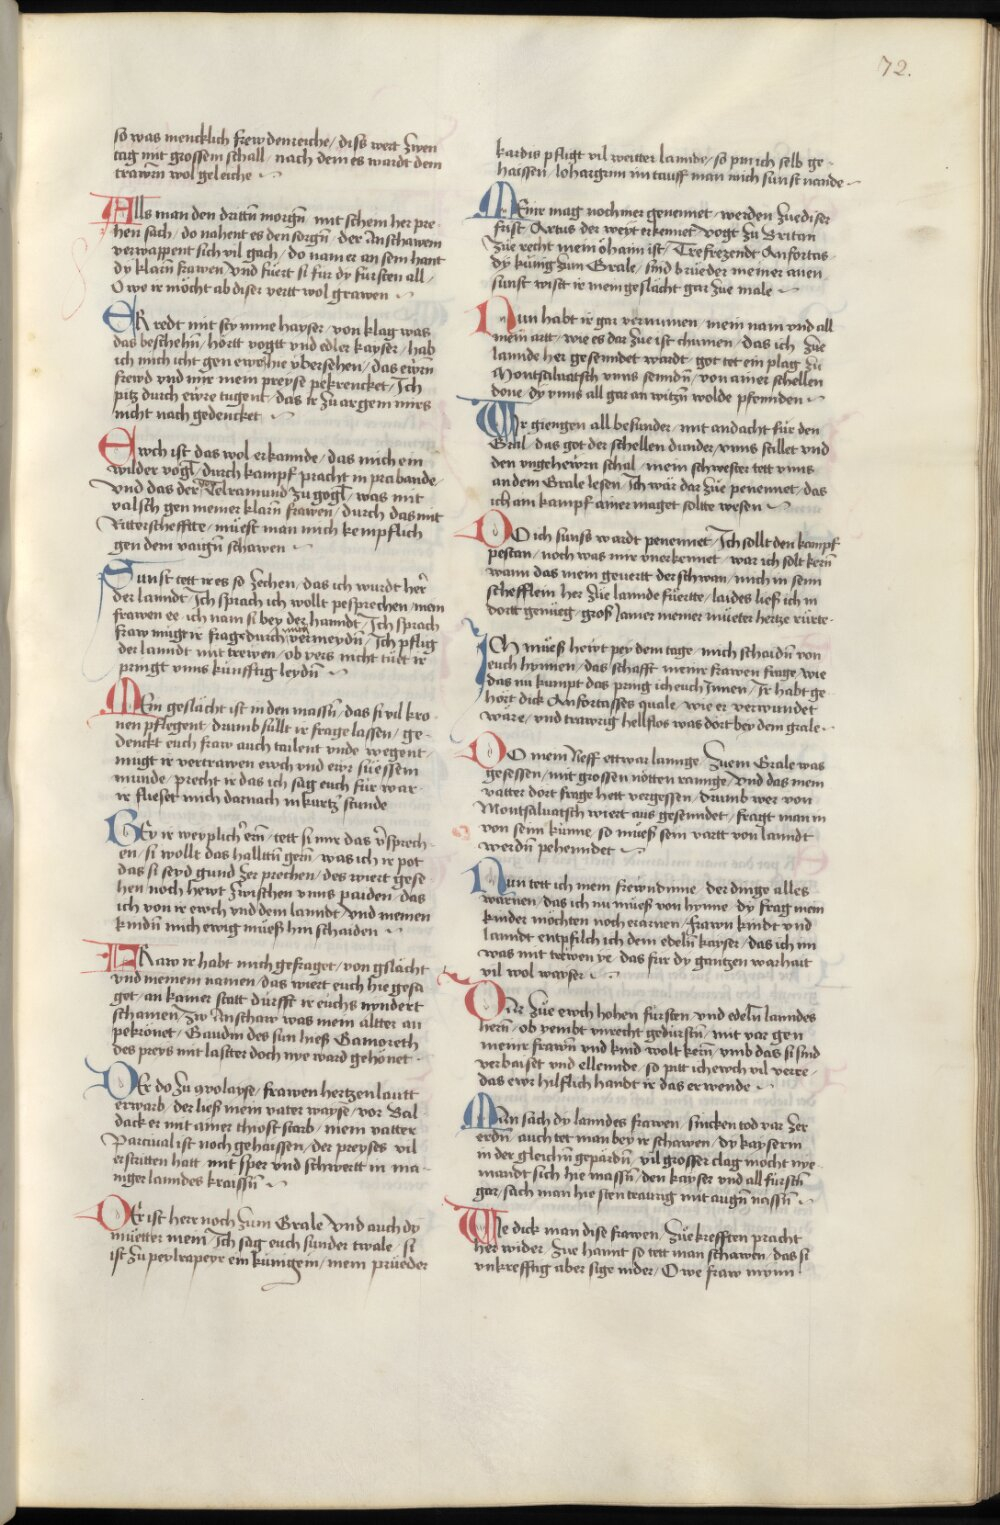 72.
so was mencklich frewdenreiche / diss wert zwen
tag mit grossem schall / nach dem es wardt dem
trawrn wol geleiche
Alls man den drittn morgn mit schein her pre-
hen sach / do nahent es den sorgn / der Anschawein
verwappent sich vil gach / do nam er an sein hant
dy klarn frawen / vnd fuert si fur dy fursten all /
O we ir mocht ab diser vertt wol grawen
ER redt mit stymme hayser / von klag was
das beschehn / hortt vogtt vnd edler kayser / hab
ich mich icht gen ewch hie vbersehen / das ewrn
frewd vnd mir mein preyse pekrencket / Ich
pitz durch ewre tugent / das ir zu argem mirs
nicht nach gedencket
Ewch ist das wol erkannde / das mich ein
wilder vogl / durch kampf pracht in prabande
vnd das der Telramund zu gogl / was mit
valsch gen meiner klarn frawen / durch das mit
Ritterscheffte / muest man mich kempflich
gen dem vaign schawen
Sunst tett ir es so zechen / das ich wurdt her
der lanndt / Ich sprach ich wollt pesprechen / mein
frawen ee / ich nam si bey der hanndt / Ich sprach
fraw mugt ir frag durch mich vermeydn / Ich pflig
der lanndt mit trewen / ob vers nicht tuet ir
pringt vnns kunfftig leydn
Mein geslacht ist in den massn / das si vil kro-
nen pflegent / drumb sullt ir frage lassen / ge-
denckt euch fraw auch tailent vnde wegent /
mugt ir vertrawen ewch vnd ewr suessem
munde / precht ir das ich sag euch fur war
ir flieset mich darnach in kurtzer stunde
Bey ir weyplicher ern / tett si mir das versprech-
en / si wollt das halltn gern / was ich ir pot
das si seyd gund zerprechen / des wiert gese
hen noch hewt zwischen vnns paiden / das
ich von ir ewch vnd dem lanndt / vnd meinen
kindn mich ewig mueß hin schaiden
FRaw ir habt mich gefraget / von gslacht
vnd meinem namen / das wiert euch hie gesa
get / an kainer statt durfft ir euchs nyndert
schamen / Zw Anschaw was mein altter an
pekronet / Gaudin des sun hieß Gamoreth
des preys mit lastter doch nye ward gehonet
DEr do zu avolayse / frawen hertzenlautt
erwarb / der ließ mein vater wayse / vor Bal
dack er mit ainer thiost starb / mein vatter
Parcival ist noch gehaissen / der preyses vil
erstritten hatt mit sper vnd schwertt in ma-
niger lanndes kraissn
DEr ist herr noch zum Grale / vnd auch dy
muetter mein / Ich sag euch sunder twale / si
ist zu peylrapeyr ein kunigein / mein prueder
kardis pfligt vil weitter lannde / so pin ich selb ge-
haissen / lohargrim im tauff man mich sunst nande
MEine mag noch mer genennet / werden zue diser
frist / Artus der weyt erkennet / vogt zu Britan
zue recht mein ohaim ist / Trefrezendt Anfortas
dy kunig zum Grale / sind brueder meiner anen
sunst wist ir mein geslacht gar zue male
Nun habt ir gar vernumen / mein nam vnd all
mein artt / wie es dar zue ist chumen / das ich zue
lannde her gesenndet wardt / got tet ein plag zu
Montsaluatsch vnns senndn / von ainer schellen
done / dy vnns all gar an witzn wolde pfenden
Wir giengen all besunder / mit andacht fur den
Gral / das got der schellen dunder / vnns stillet vnd
den vngehewrn schal / mein schwester tett vnns
an dem Grale lesen / Ich war dar zue penennet / das
ich am kampf ainer maget sollte wesen
DO ich sunst wardt penennet / Ich sollt den kampf
pestan / noch was mir vnerkennet / war ich solt kern
wann das mein gevertt der schwan / mich in seim
schefflein her zue lannde fuertte / laides ließ ich in
dortt genueg / groß Jamer meiner mueter hertze rurte
ICh mueß hewt pey dem tage / mich schaidn von
euch hynnen / das schafft meinr frawen frage / wie
das nu kumpt das pring ich euch Innen / Ir habt ge-
hort dick Anfortasses quale / wie er verwundet
ware / vnd trawrig hellflos was dort bey dem grale
DO mein Neff ettwar lannge / zuem Grale was
gesessen / mit grossen notten rannge / vnd das mein
vatter dort frage hett vergessen / drumb wer von
Montsaluatsch wiert aus gesenndet / fragt man in
von seim kunne / so mueß sein vartt von lanndt
werdn pehenndet
Nun tett ich mein frewndinne / der dinge alles
warnen / das ich nu mueß von hynne / dy frag mein
kinder mochten noch erarnen / frawn kindt vnd
lanndt entpfilch ich dem edeln kayser / das ich im
was mit trewen ye / das fur dy gantzen warhait
vil wol wayser
Dar zue ewch hohen fursten / vnd edeln lanndes
hern / ob yembt vnrecht gedurstn / mit var gen
meinr frawn vnd kind wolt kern / vmb das si sind
verbaiset vnd ellennde / so pitt ich ewch vil verre /
das ewr hilflich handt ir das erwende
Man sach dy lanndes frawen / sincken tod var zer
erdn / auch tet man bey ir schawen / dy kayserin
in der gleichn gepardn / vil grosser clag mocht nye
mandt sich hie massn / den kayser vnd all furstn
gar / sach man hie sten traurig mit augn nassn
Wie dick man dise frawen / zue krefften pracht
her wider / zue hannt so tett man schawen / das si
vnkrefftig aber sige nider / O we fraw mynn